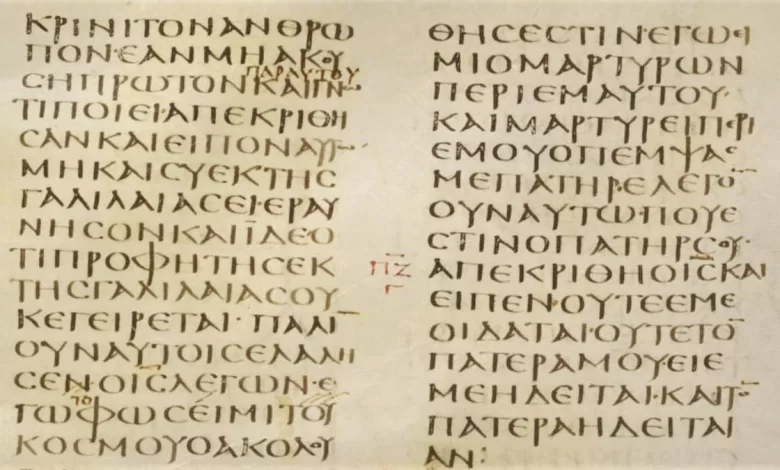 ΚΡΙΝΙΤΟΝΑΝΘΡΩ
ΠΟΝ·ΕΑΝΜΗΑΚΟΥ
ΠΑΡΑΥΤΟΥ
ϹΗΠΡΩΤΟΝΚΑΙΓΝΩ
ΤΙΠΟΙΕΙ·ΑΠΕΚΡΙΘΗ
ϹΑΝΚΑΙΕΙΠΟΝΑΥΤΩ·
ΜΗΚΑΙϹΥΕΚΤΗϹ
ΓΑΛΙΛΑΙΑϹΕΙ·ΕΡΑΥ
ΝΗϹΟΝΚΑΙΪΔΕΟ
ΤΙΠΡΟΦΗΤΗϹΕΚ
ΤΗϹΓΑΛΙΛΑΙΑϹΟΥ
ΚΕΓΕΙΡΕΤΑΙ· ΠΑΛΙ̅
ΟΥΝΑΥΤΟΙϹΕΛΑΛΗ
ϹΕΝ·Ο̅Ι̅Ϲ̅ΛΕΓΩΝ·Ε
ΤΟ
ΓΩΦΩϹΕΙΜΙΤΟΥ
ΚΟϹΜΟΥΟΑΚΟΛΟΥ
ΘΗϹΕϹΤΙΝ·ΕΓΩΕΙ
ΜΙΟΜΑΡΤΥΡΩΝ
ΠΕΡΙΕΜΑΥΤΟΥ·
ΚΑΙΜΑΡΤΥΡΕΙΠΕΡΙ
ΕΜΟΥΟΠΕΜΨΑϹ
ΜΕΠΑΤΗΡ·ΕΛΕΓΟ̅
ΟΥΝΑΥΤΩ·ΠΟΥΕ
ϹΤΙΝΟΠΑΤΗΡϹΟΥ·
Π̅Ζ̅
Γ
ΑΠΕΚΡΙΘΗΟΙ̅Ϲ̅ΚΑΙ
ΕΙΠΕΝ·ΟΥΤΕΕΜΕ
ΟΙΔΑΤΑΙ·ΟΥΤΕΤΟ̅
ΠΑΤΕΡΑΜΟΥ·ΕΙΕ
ΜΕΗΔΕΙΤΑΙ·ΚΑΙΤΟ̅
ΠΑΤΕΡΑΗΔΕΙΤΑΙ
ΑΝ: